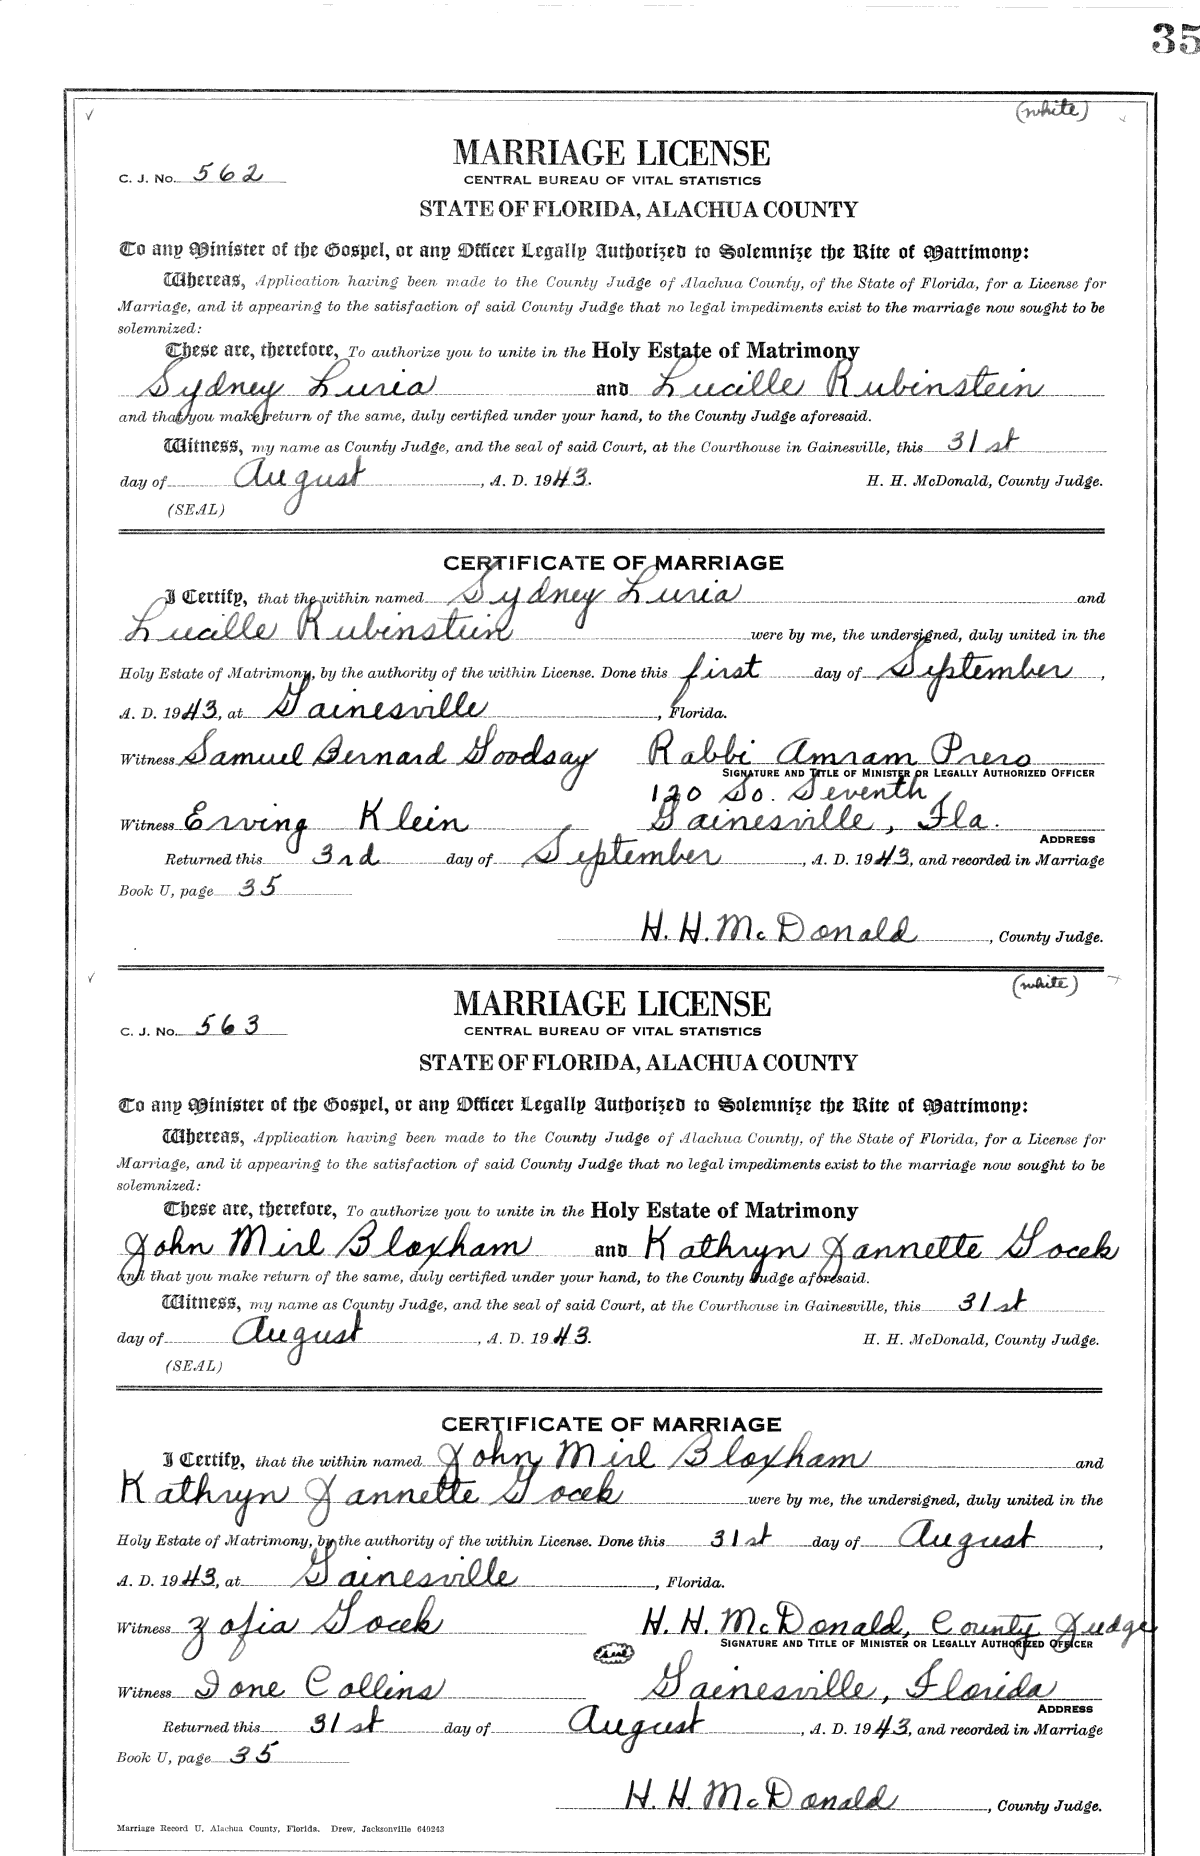 35
(white)
MARRIAGE LICENSE
C. J. No. 562
CENTRAL BUREAU OF VITAL STATISTICS
STATE OF FLORIDA, ALACHUA COUNTY
To any Minister of the Gospel, or any Officer Legally Authorized to Solemnize the Rite of Matrimony:
Whereas, Application having been made to the County Judge of Alachua County, of the State of Florida, for a License for
Marriage, and it appearing to the satisfaction of said County Judge that no legal impediments exist to the marriage now sought to be
solemnized:
These are, therefore, To authorize you to unite in the Holy Estate of Matrimony
Sydney Luria and Lucille Rubinstein
and that you make return of the same, duly certified under your hand, to the County Judge aforesaid.
Witness, my name as County Judge, and the seal of said Court, at the Courthouse in Gainesville, this 31st
day of August, A. D. 1943. H. H. McDonald, County Judge.
(SEAL)
CERTIFICATE OF MARRIAGE
I Certify, that the within named Sydney Luria and
Lucille Rubinstein were by me, the undersigned, duly united in the
Holy Estate of Matrimony, by the authority of the within License. Done this first day of September,
A. D. 1943, at Gainesville, Florida.
Witness Samuel Bernard Goodsay Rabbi Amram Prero
SIGNATURE AND TITLE OF MINISTER OR LEGALLY AUTHORIZED OFFICER
120 So. Seventh
Witness Erving Klein Gainesville, Fla.
ADDRESS
Returned this 3rd day of September, A. D. 1943, and recorded in Marriage
Book U, page 35
H. H. McDonald, County Judge.
(white)
MARRIAGE LICENSE
C. J. No. 563
CENTRAL BUREAU OF VITAL STATISTICS
STATE OF FLORIDA, ALACHUA COUNTY
To any Minister of the Gospel, or any Officer Legally Authorized to Solemnize the Rite of Matrimony:
Whereas, Application having been made to the County Judge of Alachua County, of the State of Florida, for a License for
Marriage, and it appearing to the satisfaction of said County Judge that no legal impediments exist to the marriage now sought to be
solemnized:
These are, therefore, To authorize you to unite in the Holy Estate of Matrimony
John Mirl Bloxham and Kathryn Jannette Gocek
and that you make return of the same, duly certified under your hand, to the County Judge aforesaid.
Witness, my name as County Judge, and the seal of said Court, at the Courthouse in Gainesville, this 31st
day of August, A. D. 1943. H. H. McDonald, County Judge.
(SEAL)
CERTIFICATE OF MARRIAGE
I Certify, that the within named John Mirl Bloxham and
Kathryn Jannette Gocek were by me, the undersigned, duly united in the
Holy Estate of Matrimony, by the authority of the within License. Done this 31st day of August,
A. D. 1943, at Gainesville, Florida.
Witness Zofia Gocek H. H. McDonald, County Judge
SIGNATURE AND TITLE OF MINISTER OR LEGALLY AUTHORIZED OFFICER
seal
Witness Ione Collins Gainesville, Florida
ADDRESS
Returned this 31st day of August, A. D. 1943, and recorded in Marriage
Book U, page 35
H. H. McDonald, County Judge.
Marriage Record U, Alachua County, Florida. Drew, Jacksonville 649243